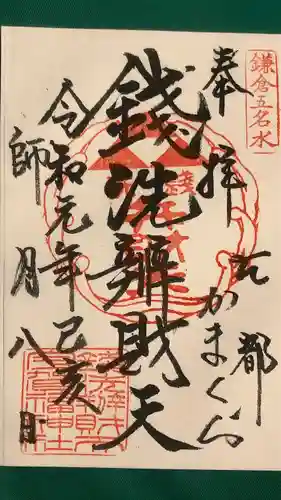 鎌倉五名水
奉拝
古都
かまくら
銭洗辨財天
令和元年己亥
師月八日